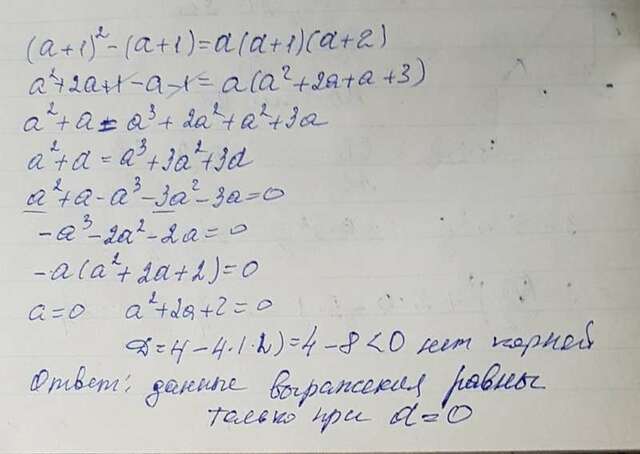 (a+1)² - (a+1) = a(a+1)(a+2)
a²+2a+1-a-1 = a(a²+2a+a+3)
a²+a = a³+2a²+a²+3a
a²+a = a³+3a²+3a
a²+a-a³-3a²-3a=0
-a³-2a²-2a=0
-a(a²+2a+2)=0
a=0 a²+2a+2=0
D=4-4·1·2)=4-8<0 нет корней
Ответ: данные выражения равны
только при a=0